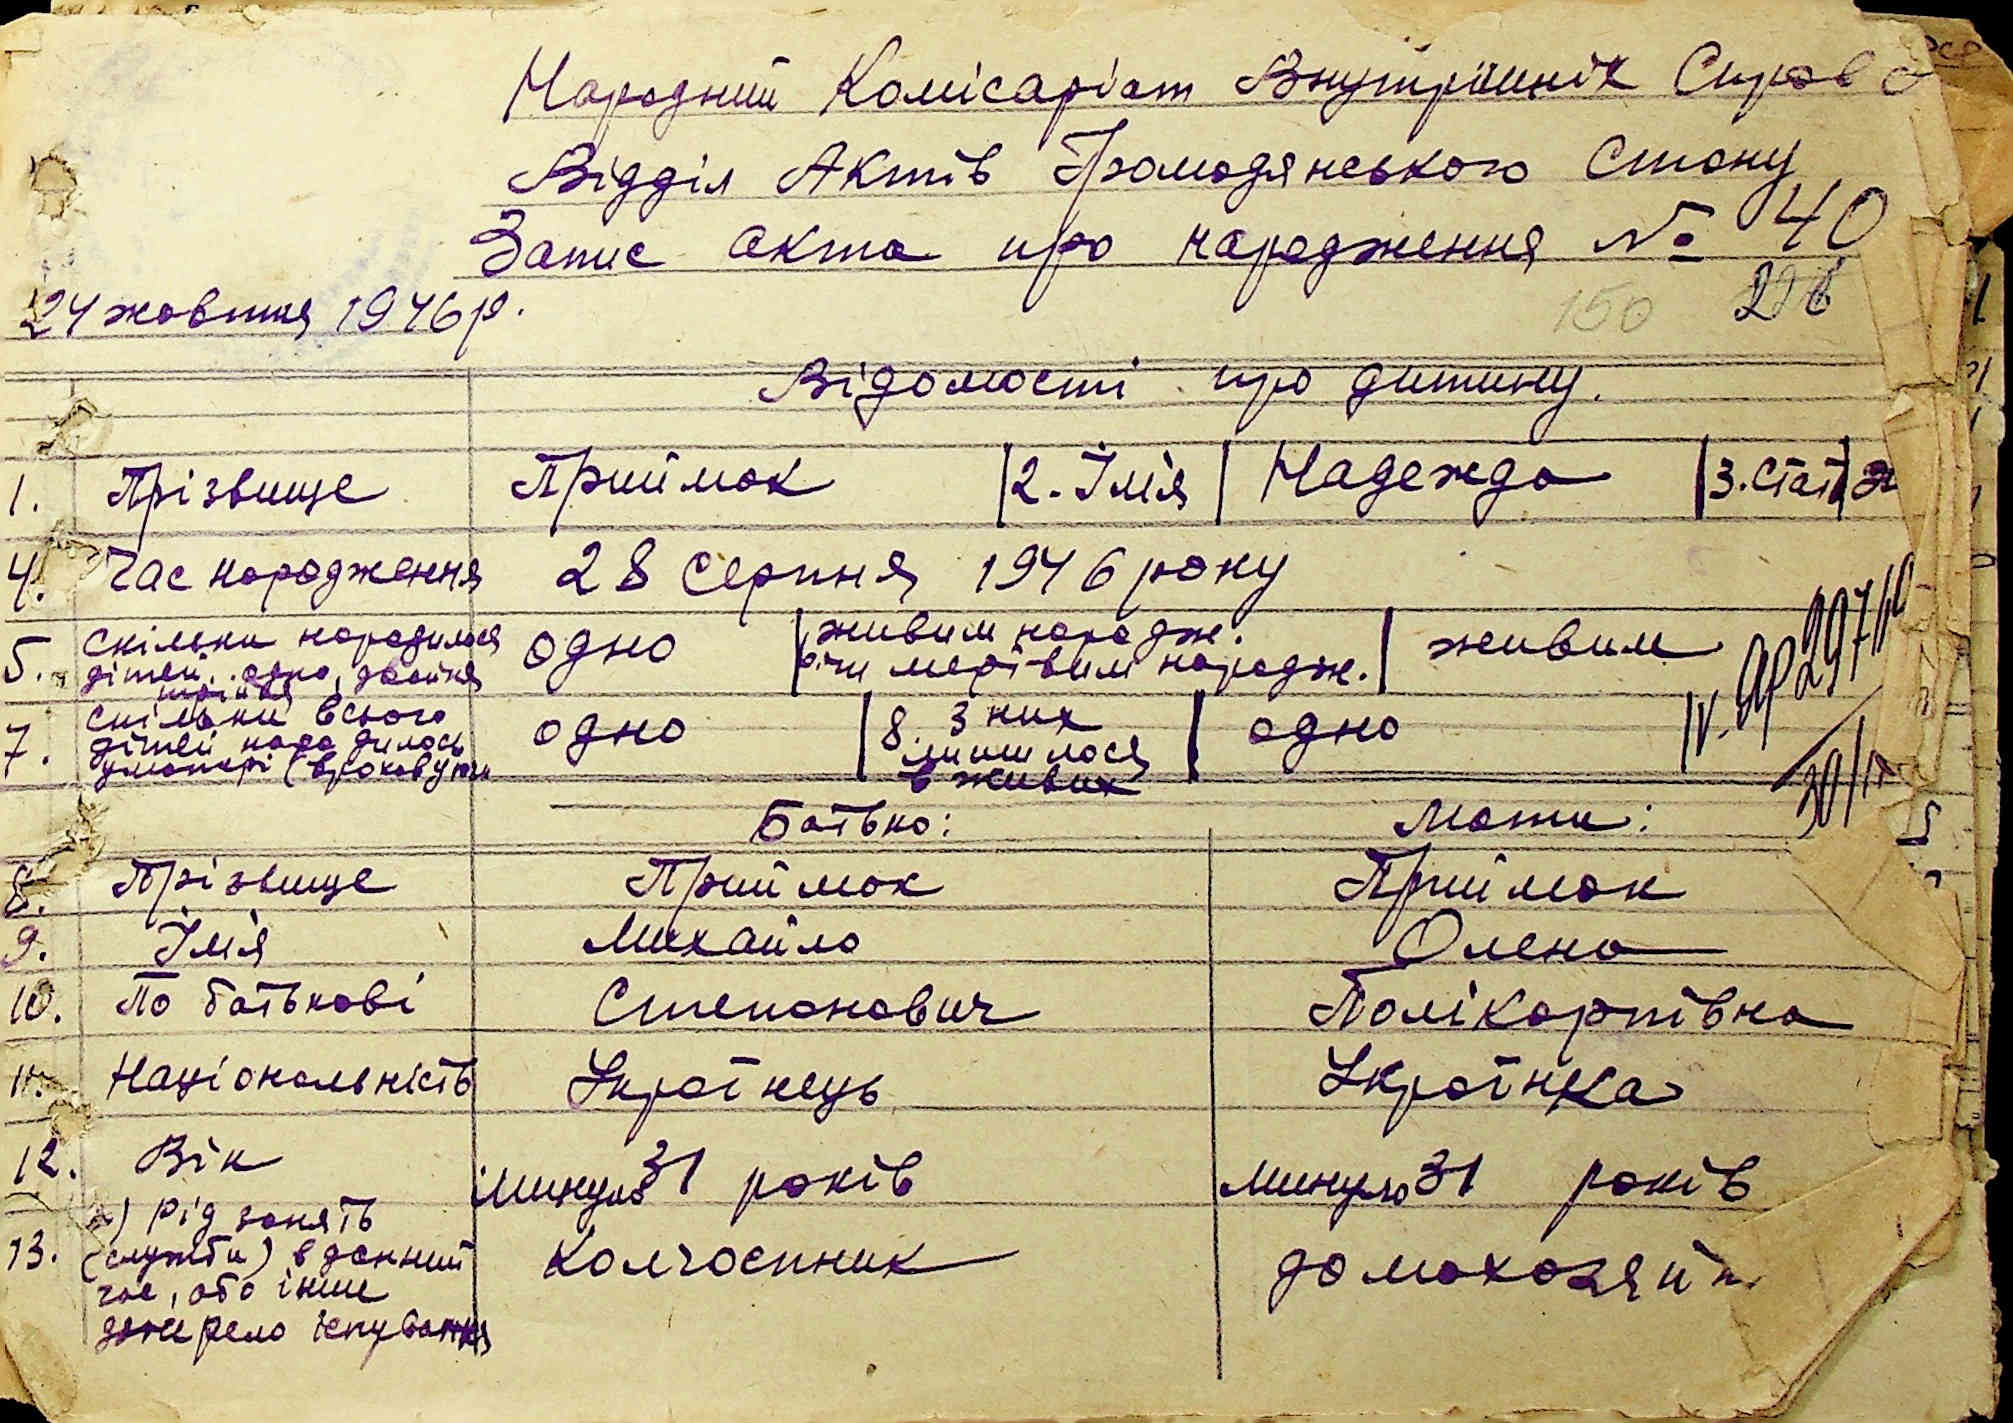 Народний Комісаріат Внутрішніх Справ
Відділ Актів Громадянського Стану
Запис акта про народження № 40
150 226
24 жовтня 1946 р.
Відомості про дитину.
1. Прізвище Приймак 2. Ім'я Надежда 3. Стать ж
4. Час народження 28 серпня 1946 року
5. Скільки народилося дітей.. одно, двойня трійня одно живим народж. чи мертвим народж. живим
7. Скільки всього дітей народилось у матері (враховуючи одно 8. З них лишилося в живих одно
Батько: Мати:
8. Прізвище Приймак Приймак
9. Ім'я Михайло Олена
10. По батькові Степанович Полікарпівна
11. Національність Українець Українка
12. Вік минуло 31 років минуло 31 років
13. а) Рід занять (служби) в данний час, або інше джерело існування Колгоспник домохозяйк